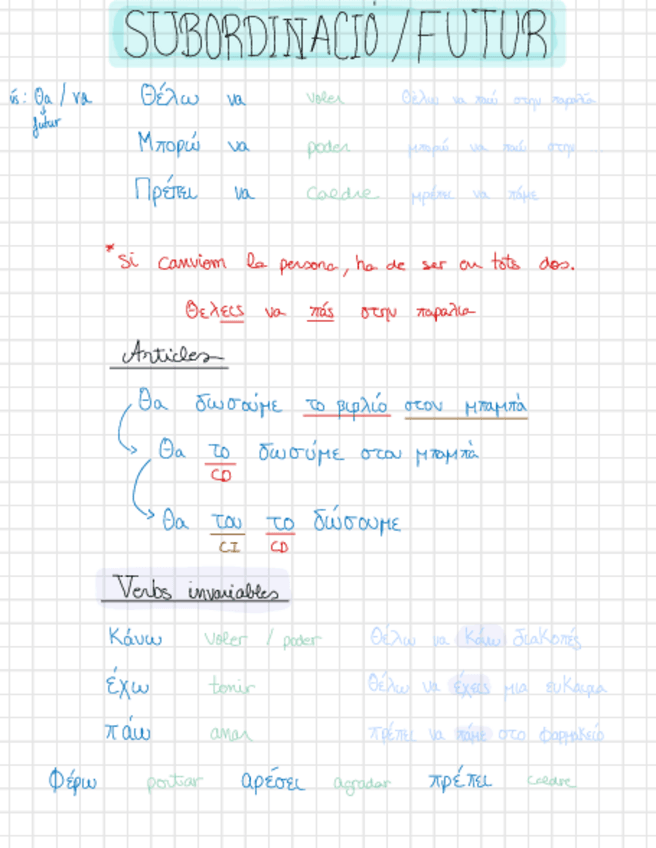 SUBORDINACIÓ / FUTUR
ús: Θα / να Θέλω να voler Θέλω να πάω στην παραλία
futur
Μπορώ να poder μπορώ να πάω στην
Πρέπει να Caldre μρέπει να πάμε
* Si canviem la persona, ha de ser en tots dos.
Θελεις να πάς στην παραλια
Articles
Θα δωσούμε το βιβλίο στον μπαμπά
Θα το δωσύμε στον μπαμπά
CD
Θα του το δώσουμε
CI CD
Verbs invariables
Κάνω voler / poder Θέλω να Κάνω διακοπές
έχω tenir Θέλω να έχεις μια ευκαιρα
πάω anar πρέπει να πάμε στο φαρμακείο
Φέρω portar αρέσει agradar πρέπει caldre